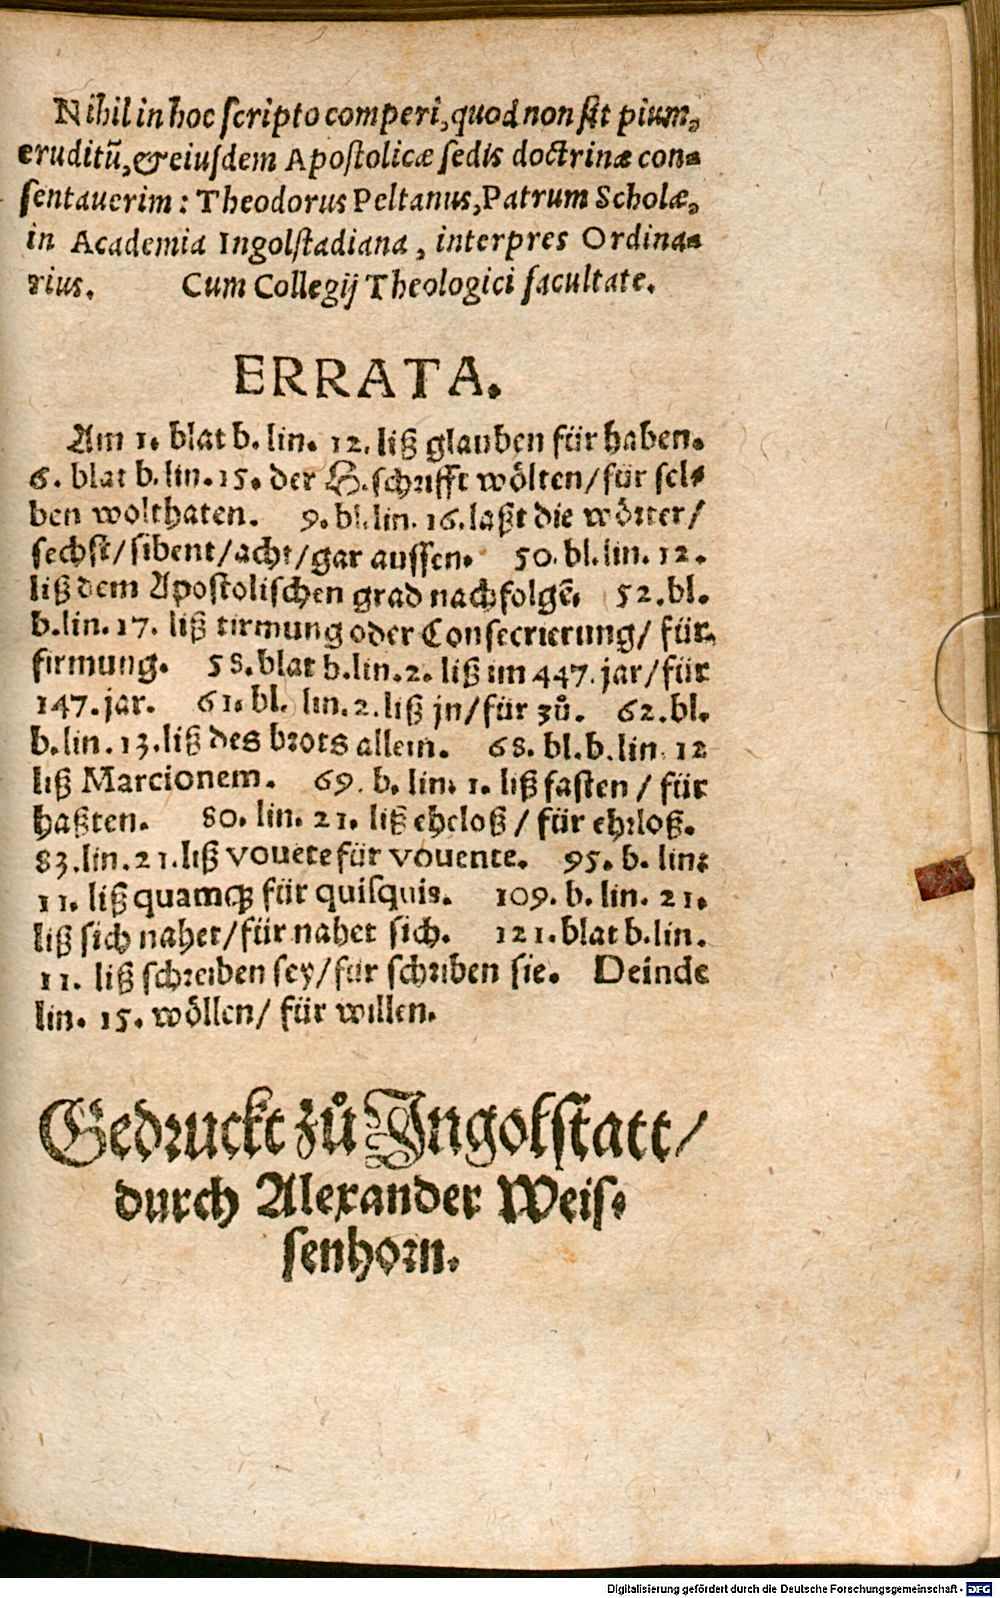 Nihil in hoc scripto comperi, quod non sit pium,
eruditū, & eiusdem Apostolicæ sedis doctrinæ con⸗
sentauerim: Theodorus Peltanus, Patrum Scholæ,
in Academia Ingolstadiana, interpres Ordina⸗
rius. Cum Collegij Theologici facultate.
ERRATA.
Am 1. blat b. lin. 12. liß glauben für haben.
6. blat b. lin. 15. der H. schrifft wölten/ für sel⸗
ben wolthaten. 9. bl. lin. 16. laßt die wörter/
sechst/ sibent/ acht/ gar aussen. 50. bl. lin. 12.
liß dem Apostolischen grad nachfolgē. 52. bl.
b. lin. 17. liß tirmung oder Consecrierung/ für
firmung. 58. blat b. lin. 2. liß im 447. jar/ für
147. jar. 61. bl. lin. 2. liß jn/ für zů. 62. bl.
b. lin. 13. liß des brots allein. 68. bl. b. lin. 12
liß Marcionem. 69. b. lin. 1. liß fasten / für
haßten. 80. lin. 21. liß eheloß / für ehrloß.
83. lin. 21. liß vouete für vouente. 95. b. lin.
11. liß quamqꝫ für quisquis. 109. b. lin. 21.
liß sich nahet/ für nahet sich. 121. blat b. lin.
11. liß schreiben sey/ für schriben sie. Deinde
lin. 15. wöllen/ für willen.
Gedruckt zů Ingolstatt/
durch Alexander Weis⸗
senhorn.
Digitalisierung gefördert durch die Deutsche Forschungsgemeinschaft - DFG